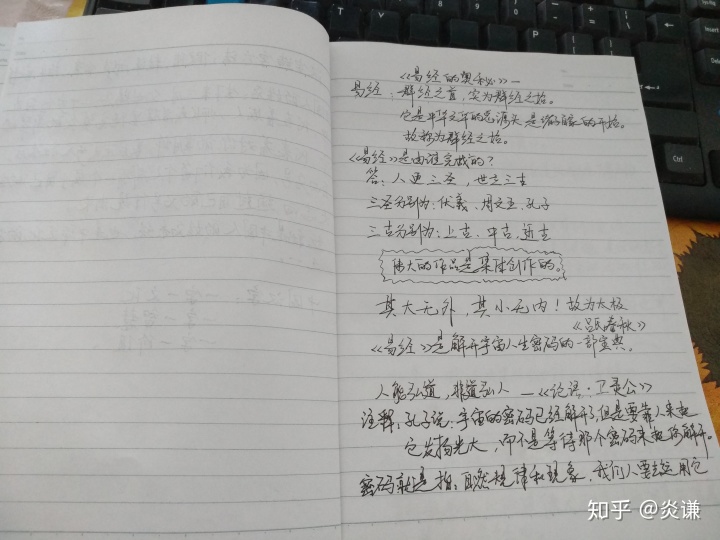 《易经的奥秘》一
易经：群经之首，实为群经之始。
它是中华文年的总源头 是诸子百家的开始。
故称为群经之始。
《易经》是由谁完成的？
答：人更三圣，世立三古
三圣分别为：伏羲、周文王、孔子
三古分别为：上古、中古、近古
伟大的作品是集体创作的。
其大无外，其小无内！故为太极
《吕氏春秋》
《易经》是解开宇宙人生密码的一部宝典。
人能弘道，非道弘人 —《论语·卫灵公》
注释：孔子说：宇宙的密码已经解开了，但是要靠人来把
它发扬光大，而不是等待那个密码来把你解开。
密码就是指：自然规律和现象，我们人要去运用它
知乎 @炎谦
Ctrl
Shift